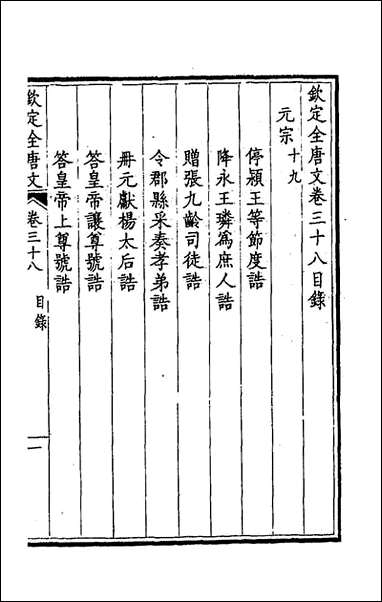 欽定全唐文卷三十八目錄
元宗十九
停潁王等節度誥
降永王璘爲庶人誥
贈張九齡司徒誥
令郡縣采奏孝弟誥
冊元獻楊太后誥
答皇帝讓尊號誥
答皇帝上尊號誥
欽定全唐文 卷三十八 目錄 一